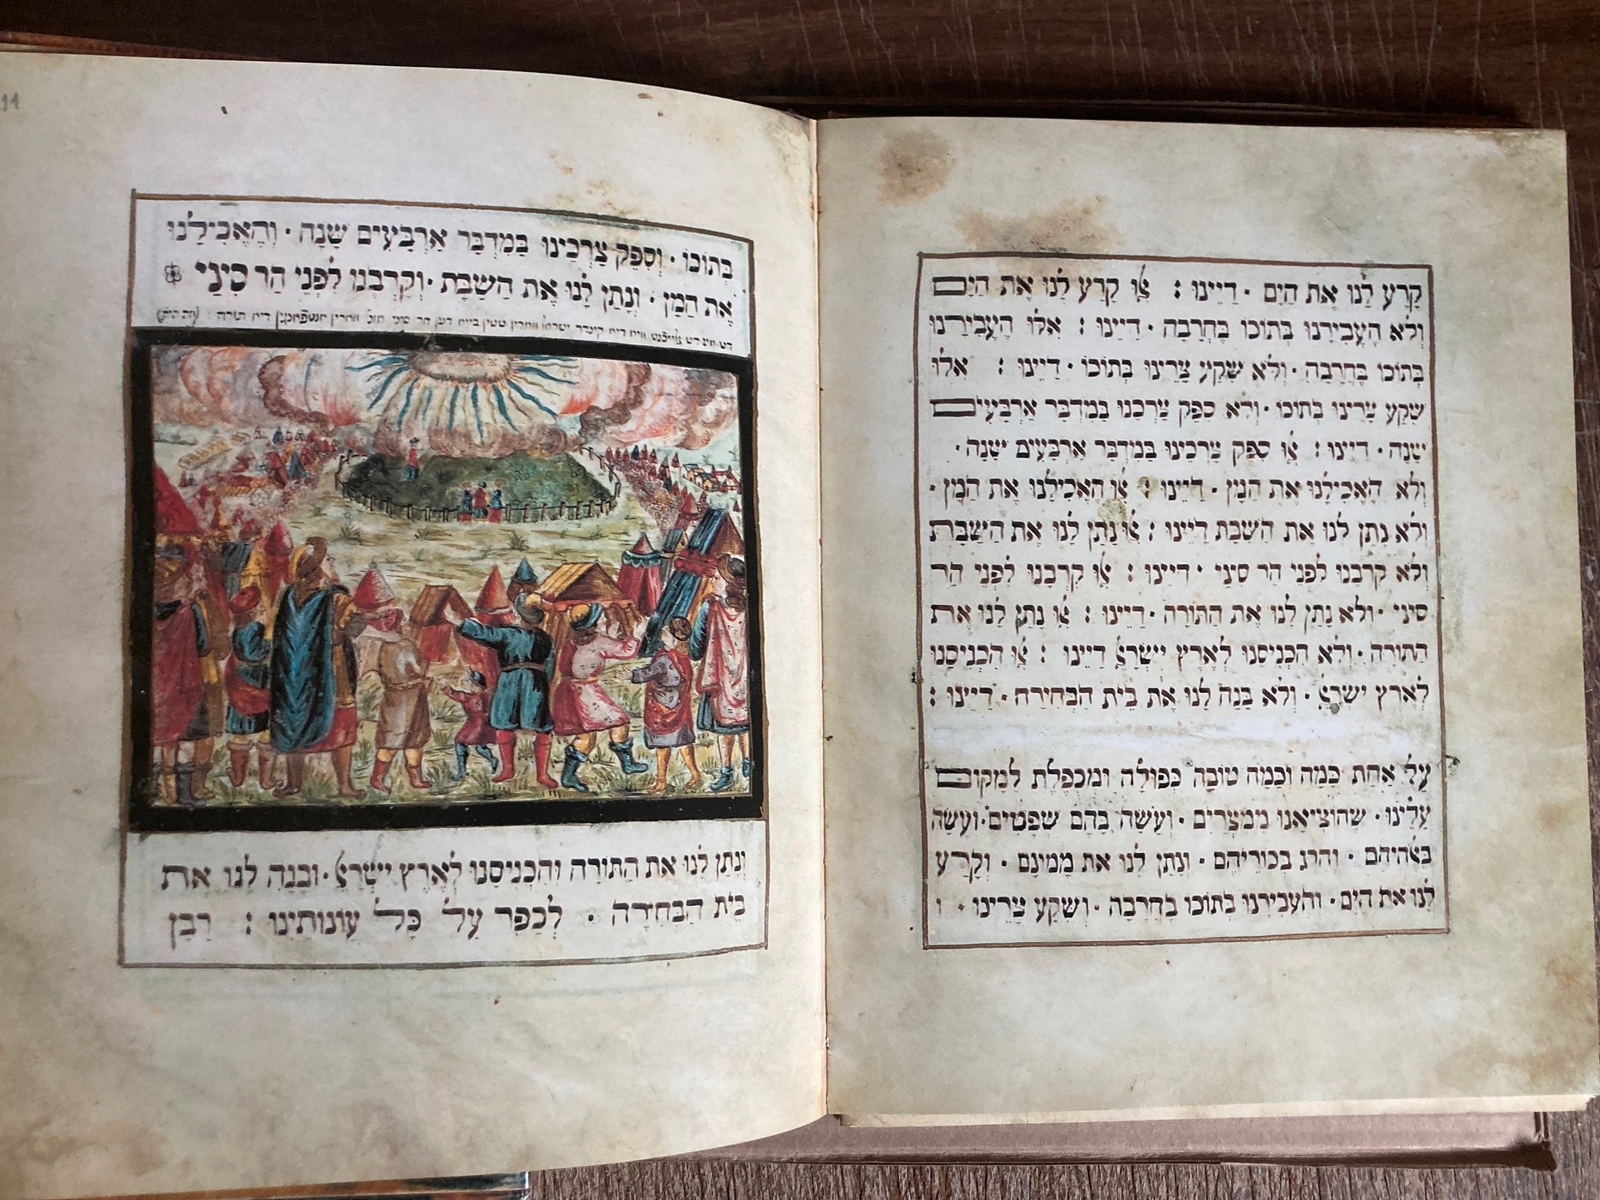 קרע לנו את הים · דיינו : ﭏו קרע לנו את הים
ולא העבירנו בתוכו בחרבה · דיינו : אלו העבירנו
בתוכו בחרבה · ולא שקע צרינו בתוכו · דיינו : אלו
שקע צרינו בתוכו · ולא ספק צרכנו במדבר ארבעים
שנה · דיינו : ﭏו ספק צרכינו במדבר ארבעים שנה ·
ולא האכילנו את המן · דיינו : ﭏו האכילנו את המן ·
ולא נתן לנו את השבת דיינו : ﭏו נתן לנו את השבת
ולא קרבנו לפני הר סיני · דיינו : ﭏו קרבנו לפני הר
סיני · ולא נתן לנו את התורה · דיינו : ﭏו נתן לנו את
התורה · ולא הכניסנו לארץ יישרﭏ דיינו : ﭏו הכניסנו
לארץ ישרﭏ · ולא בנה לנו את בית הבחירה · דיינו :
על אחת כמה וכמה טובה כפולה ומכפלת למקום
עלינו · שהוציאנו ממצרים · ועשה בהם שפטים · ועשה
בﭏהיהם · והרג בכוריהם · ונתן לנו את ממונם · וקרע
לנו את הים · והעבירנו בתוכו בחרבה · ושקע צרינו · ו
11
בתוכו · וספק צרכינו במדבר ארבעים שנה · והאכילנו
את המן · ונתן לנו את השבת · וקרבנו לפני הר סיני
דיא קינדר ישראל הר סיני דיא תורה :
ונתן לנו את התורה והכניסנו לארץ יישרﭏ · ובנה לנו את
בית הבחירה · לכפר על כל עונותינו : רבן